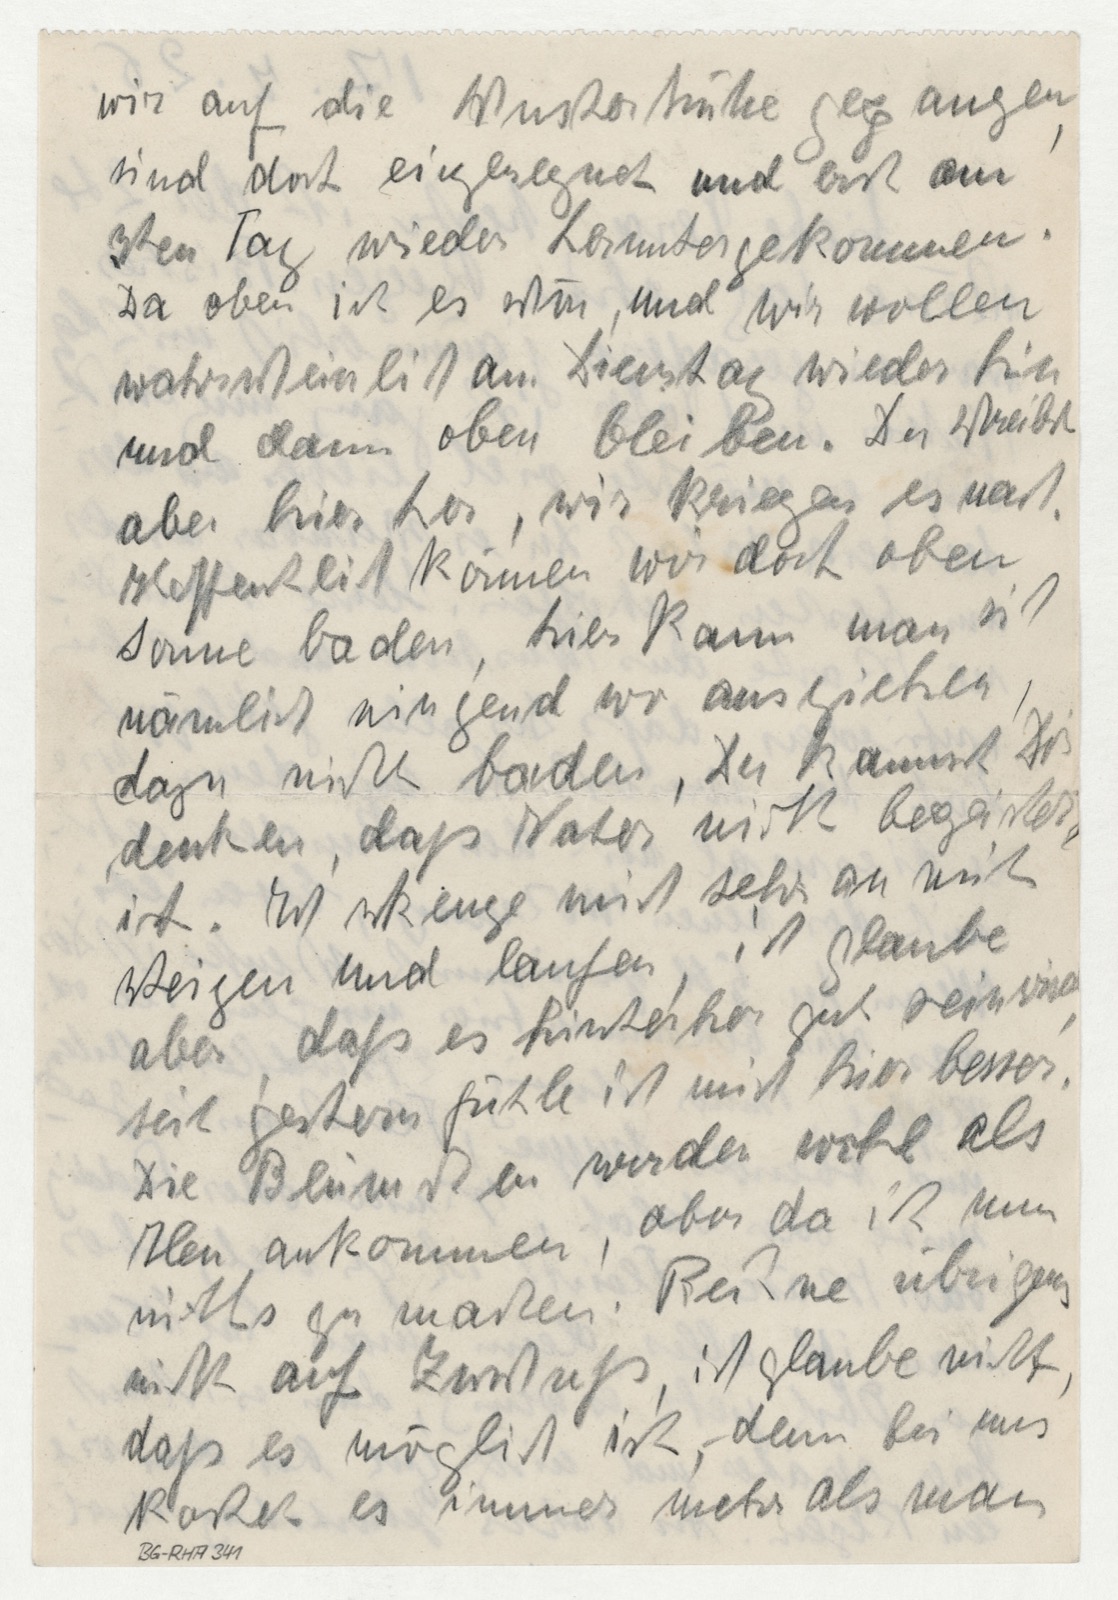 wir auf die Musterhütte gegangen,
sind dort eingeregnet und erst am
3ten Tag wieder heruntergekommen.
Da oben ist es schön, und wir wollen
wahrscheinlich am Dienstag wieder hin
und dann oben bleiben. Du schreibst
aber hierher, wir kriegen es nach.
Hoffentlich können wir dort oben
Sonne baden, hier kann man sich
nämlich nirgend wo ausziehen,
dazu nicht baden, Du kannst Dir
denken, daß Vater nicht begeistert
ist. Ich strenge mich sehr an mit
steigen und laufen, ich glaube
aber, daß es hinterher gut sein wird,
seit gestern fühle ich mich hier besser.
Die Blümchen werden wohl als
Heu ankommen, aber da ist nun
nichts zu machen. Rechne übrigens
nicht auf Zuschuß, ich glaube nicht,
daß es möglich ist, denn bei uns
kostet es immer mehr als man
BG-RHA 341